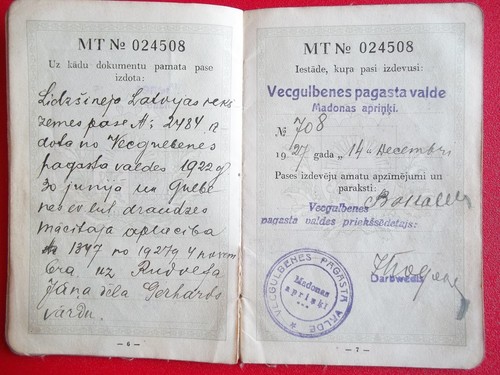 MT № 024508
Uz kādu dokumentu pamata pase
izdota:
Līdzšinējo Latvijas iekš
zemes pase A; 2484 iz
dota no Vecgulbenes
pagasta valdes 1922 g
30 junijā un Gulbe
nes ev lut draudzes
mācītāja apliecība
1347 no 1927 g 4 novem
bra uz Rudveta
Jāņa dēla Gerhards
vārdu.
— 6 —
MT № 024508
Iestāde, kuŗa pasi izdevusi:
Vecgulbenes pagasta valde
Madonas apriņķi.
№ 708
1927 gada „14" Decembri
Pases izdevēju amatu apzīmējumi un
paraksti:
Vecgulbenes
pagasta valdes priekšsēdētajs:
Darbvedis
VECGULBENES PAGASTA VALDE
Madonas
apriņķī
— 7 —